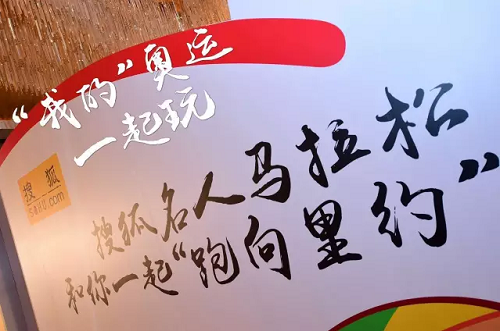 “我的”奥运
一起玩
搜狐
sohu.com
搜狐名人马拉松
和你一起“跑向里约”